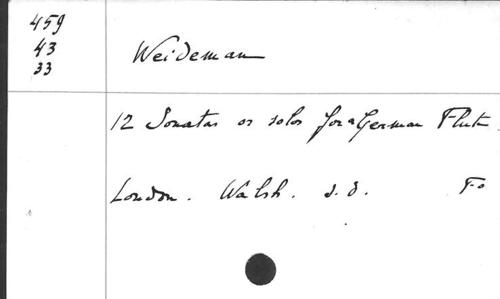 459
43
33
Weideman
12 Sonatas or solos for a German Flute
London. Walsh. s. d. Fo